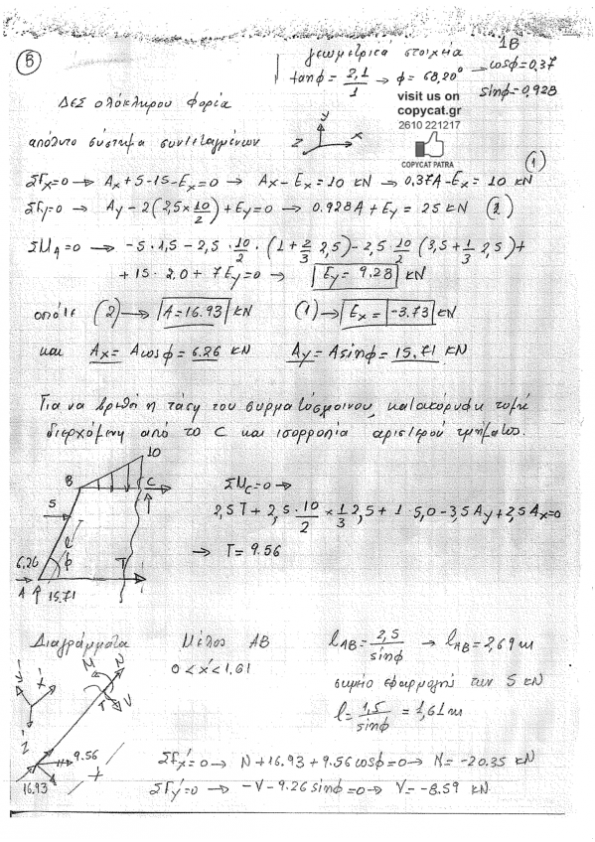 B
γεωμετρικά στοιχεία
1B
tanφ = 2,1/1 → φ = 68,20° → cosφ=0,37
sinφ=0,928
visit us on
copycat.gr
2610 221217
COPYCAT PATRA
ΔΕΣ ολόκληρου φορέα
απόλυτο σύστημα συντεταγμένων
y
x
z
(1)
ΣFx=0 → Ax+5-15-Ex=0 → Ax-Ex=10 kN → 0,37A-Ex=10 kN
ΣFy=0 → Ay-2(2,5×10/2)+Ey=0 → 0.928A+Ey=25 kN (2)
ΣM_A=0 → -5·1,5-2,5·10/2·(1+2/3 2,5)-2,5·10/2(3,5+1/3 2,5)+
+15·2.0+7Ey=0 → Ey=9.28 kN
οπότε (2) → A=16.93 kN (1) → Ex=-3.73 kN
και Ax=Acosφ=6.26 kN Ay=Asinφ=15.71 kN
Για να βρεθεί η τάση του συρματόσχοινου, κατακόρυφη τομή
διερχόμενη από το C και ισορροπία αριστερού τμήματος.
10
B
C
5
ℓ
φ
T
6.26
A
15.71
ΣM_C=0 →
2,5T+2,5·10/2×1/3 2,5+1·5,0-3,5Ay+2,5Ax=0
→ T=9.56
Διαγράμματα Μέλος AB ℓ_AB=2,5/sinφ → ℓ_AB=2,69m
0<x'<1.61
σημείο εφαρμογής των 5 kN
ℓ=1,5/sinφ=1,61m
y'
x'
z'
M
N
V
9.56
x'
16.93
ΣFx'=0 → N+16.93+9.56cosφ=0 → N=-20.35 kN
ΣFy'=0 → -V-9.26sinφ=0 → V=-8.59 kN